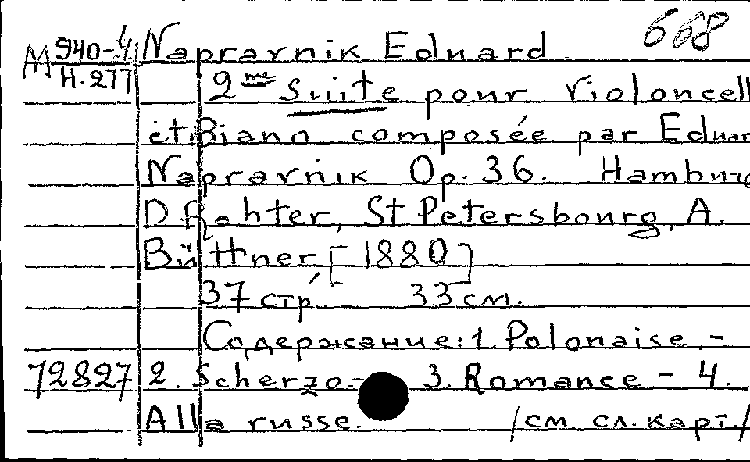 668
М 940-4 Napravnik Eduard
Н.277 2me Suite pour Violoncell
et Piano composée par Eduar
Napravnik Op. 36. Hamburg
D Rahter, St Petersbourg, A.
Büttner, [1880]
37 стр. – 33 см.
Содержание: 1. Polonaise. –
72827 2. Scherzo. – 3. Romance – 4.
Alla russe. /см. сл. карт./